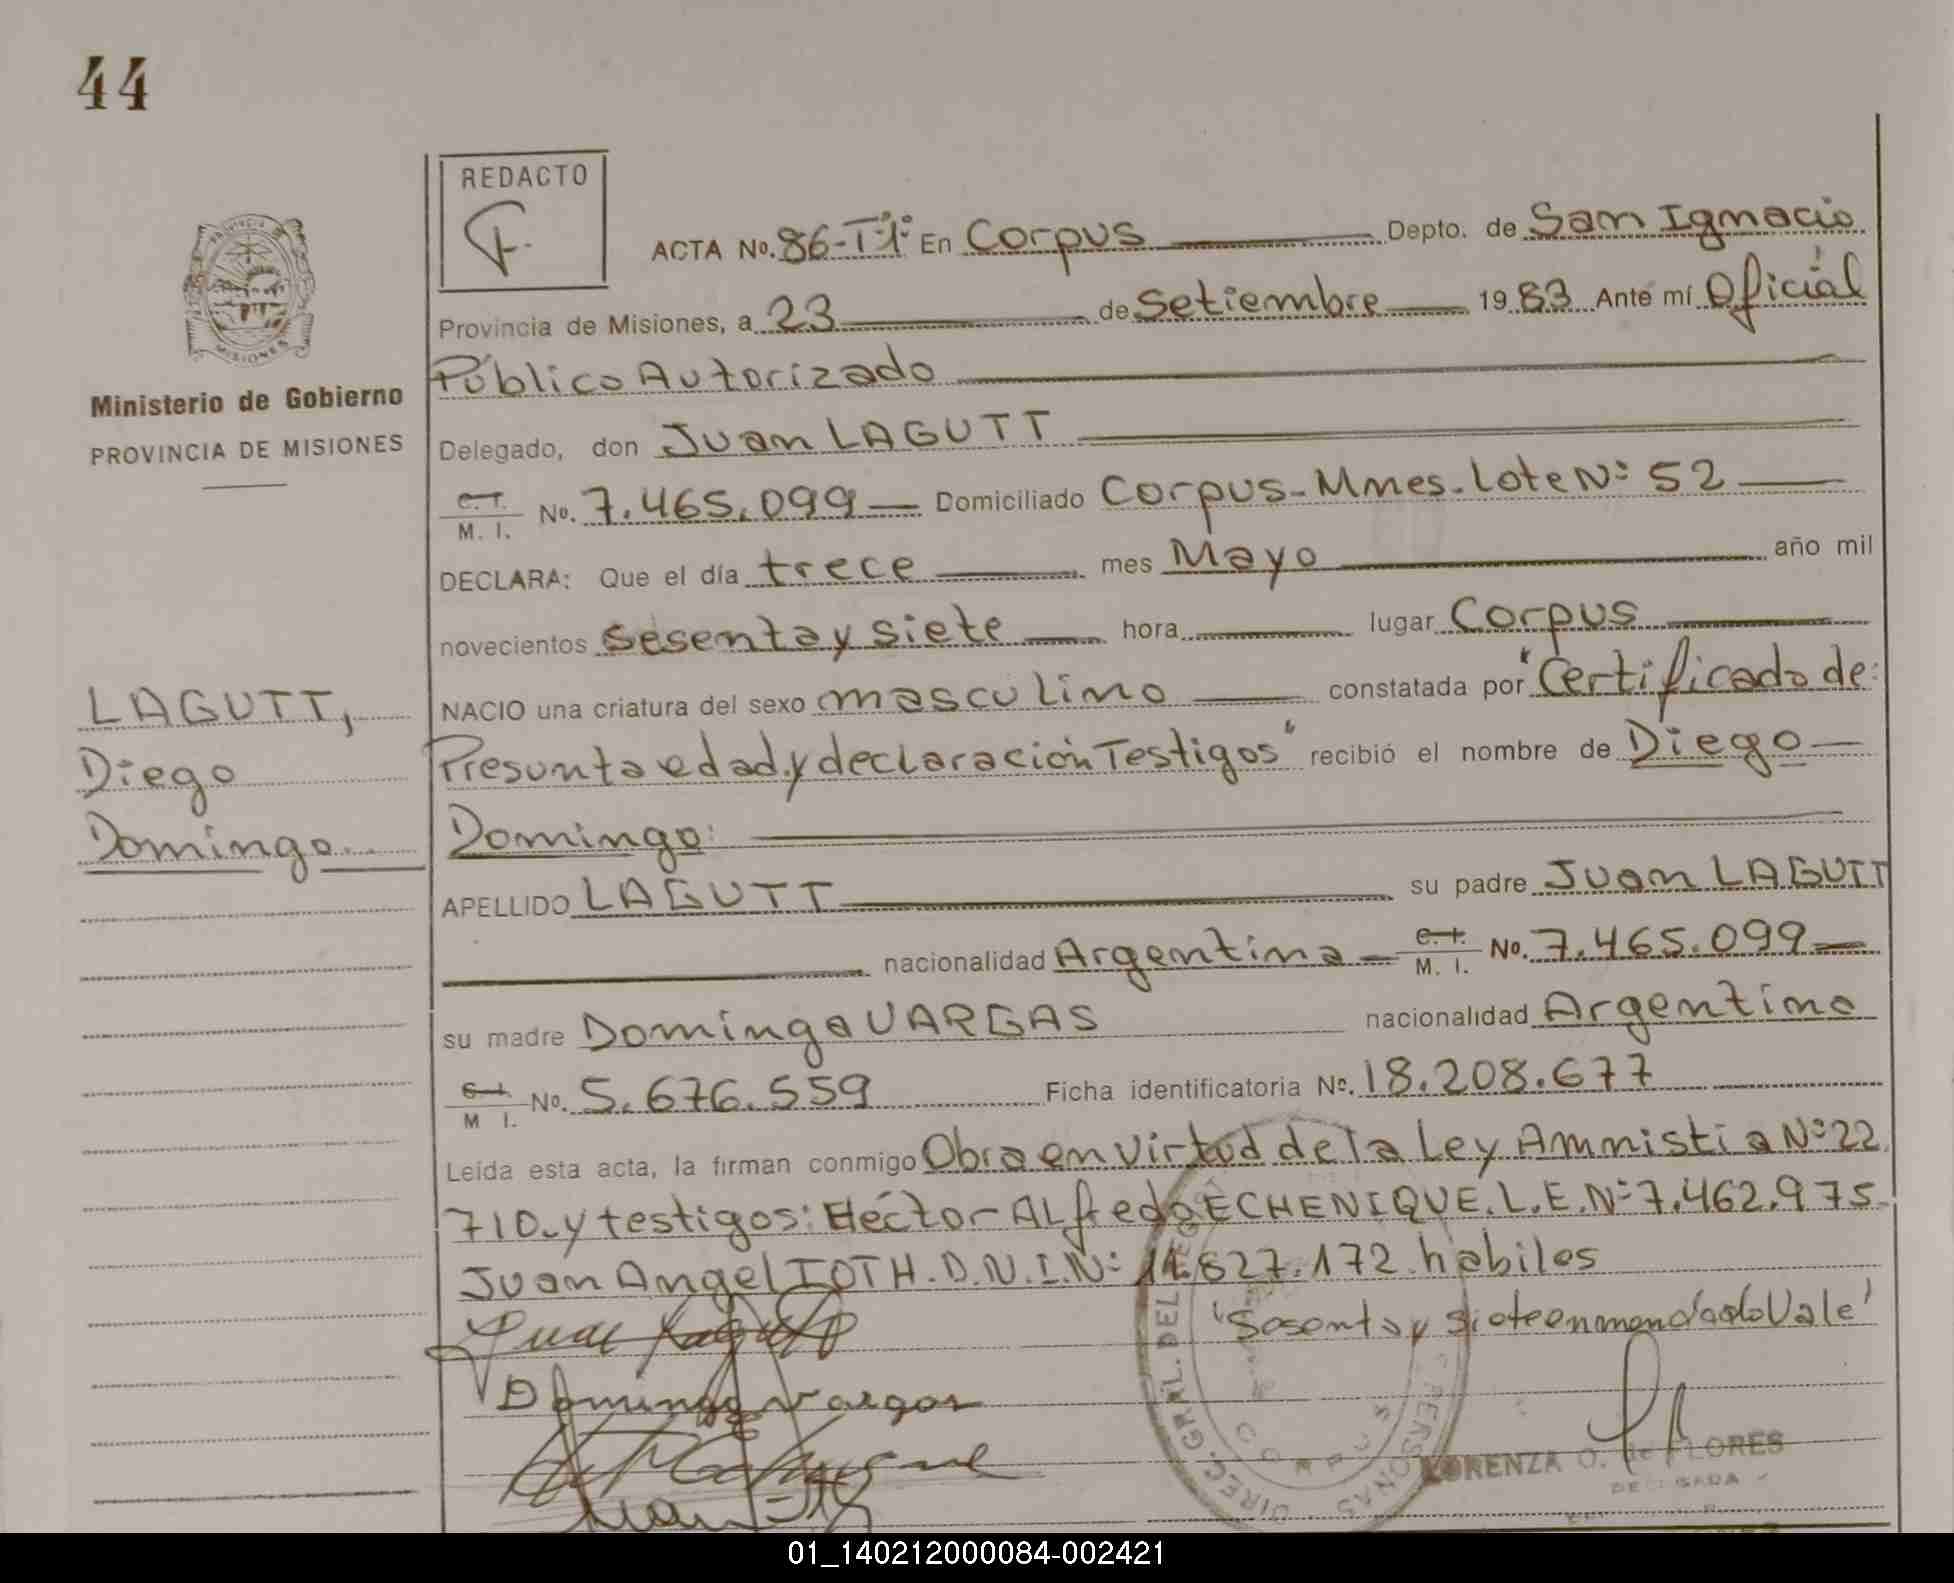 44
REDACTO
ACTA No. 86-T:1: En Corpus Depto. de San Ignacio
Provincia de Misiones, a 23 de Setiembre 1983 Ante mí Oficial
Público Autorizado
Ministerio de Gobierno
PROVINCIA DE MISIONES
Delegado, don Juan LAGUTT
C. I. M. I. No. 7.465.099 Domiciliado Corpus-Mnes-Lote Nº 52
DECLARA: Que el día trece mes Mayo año mil
novecientos sesenta y siete hora lugar Corpus
LAGUTT,
Diego
Domingo
NACIO una criatura del sexo masculino constatada por "Certificado de:
Presunta edad y declaración Testigos" recibió el nombre de Diego
Domingo
APELLIDO LAGUTT su padre Juan LAGUTT
nacionalidad Argentina C. I. M. I. No. 7.465.099
su madre Dominga VARGAS nacionalidad Argentina
C. I. M I. No. 5.676.559 Ficha identificatoria No. 18.208.677
Leída esta acta, la firman conmigo Obra en virtud de la Ley Amnistia Nº 22
710.y testigos: Héctor ALfredo ECHENIQUE.L.E.Nº 7.462.975
Juan Angel TOTH.D.N.I.Nº 11.827.172 habiles
"Sesenta y siete enmendado Vale"
Dominga Vargas
DIREC. GRAL. DEL REG. PERSONAS
CORPUS
LORENZA O. de FLORES
DELEGADA
01_140212000084-002421